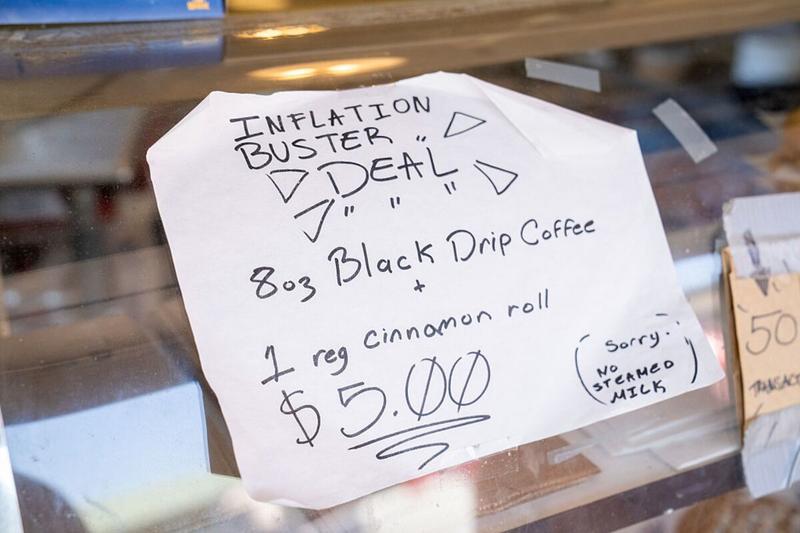 INFLATION
BUSTER
DEAL
8oz Black Drip Coffee
+
1 reg cinnamon roll
$5.00
(Sorry:
NO
STEAMED
MILK)
50